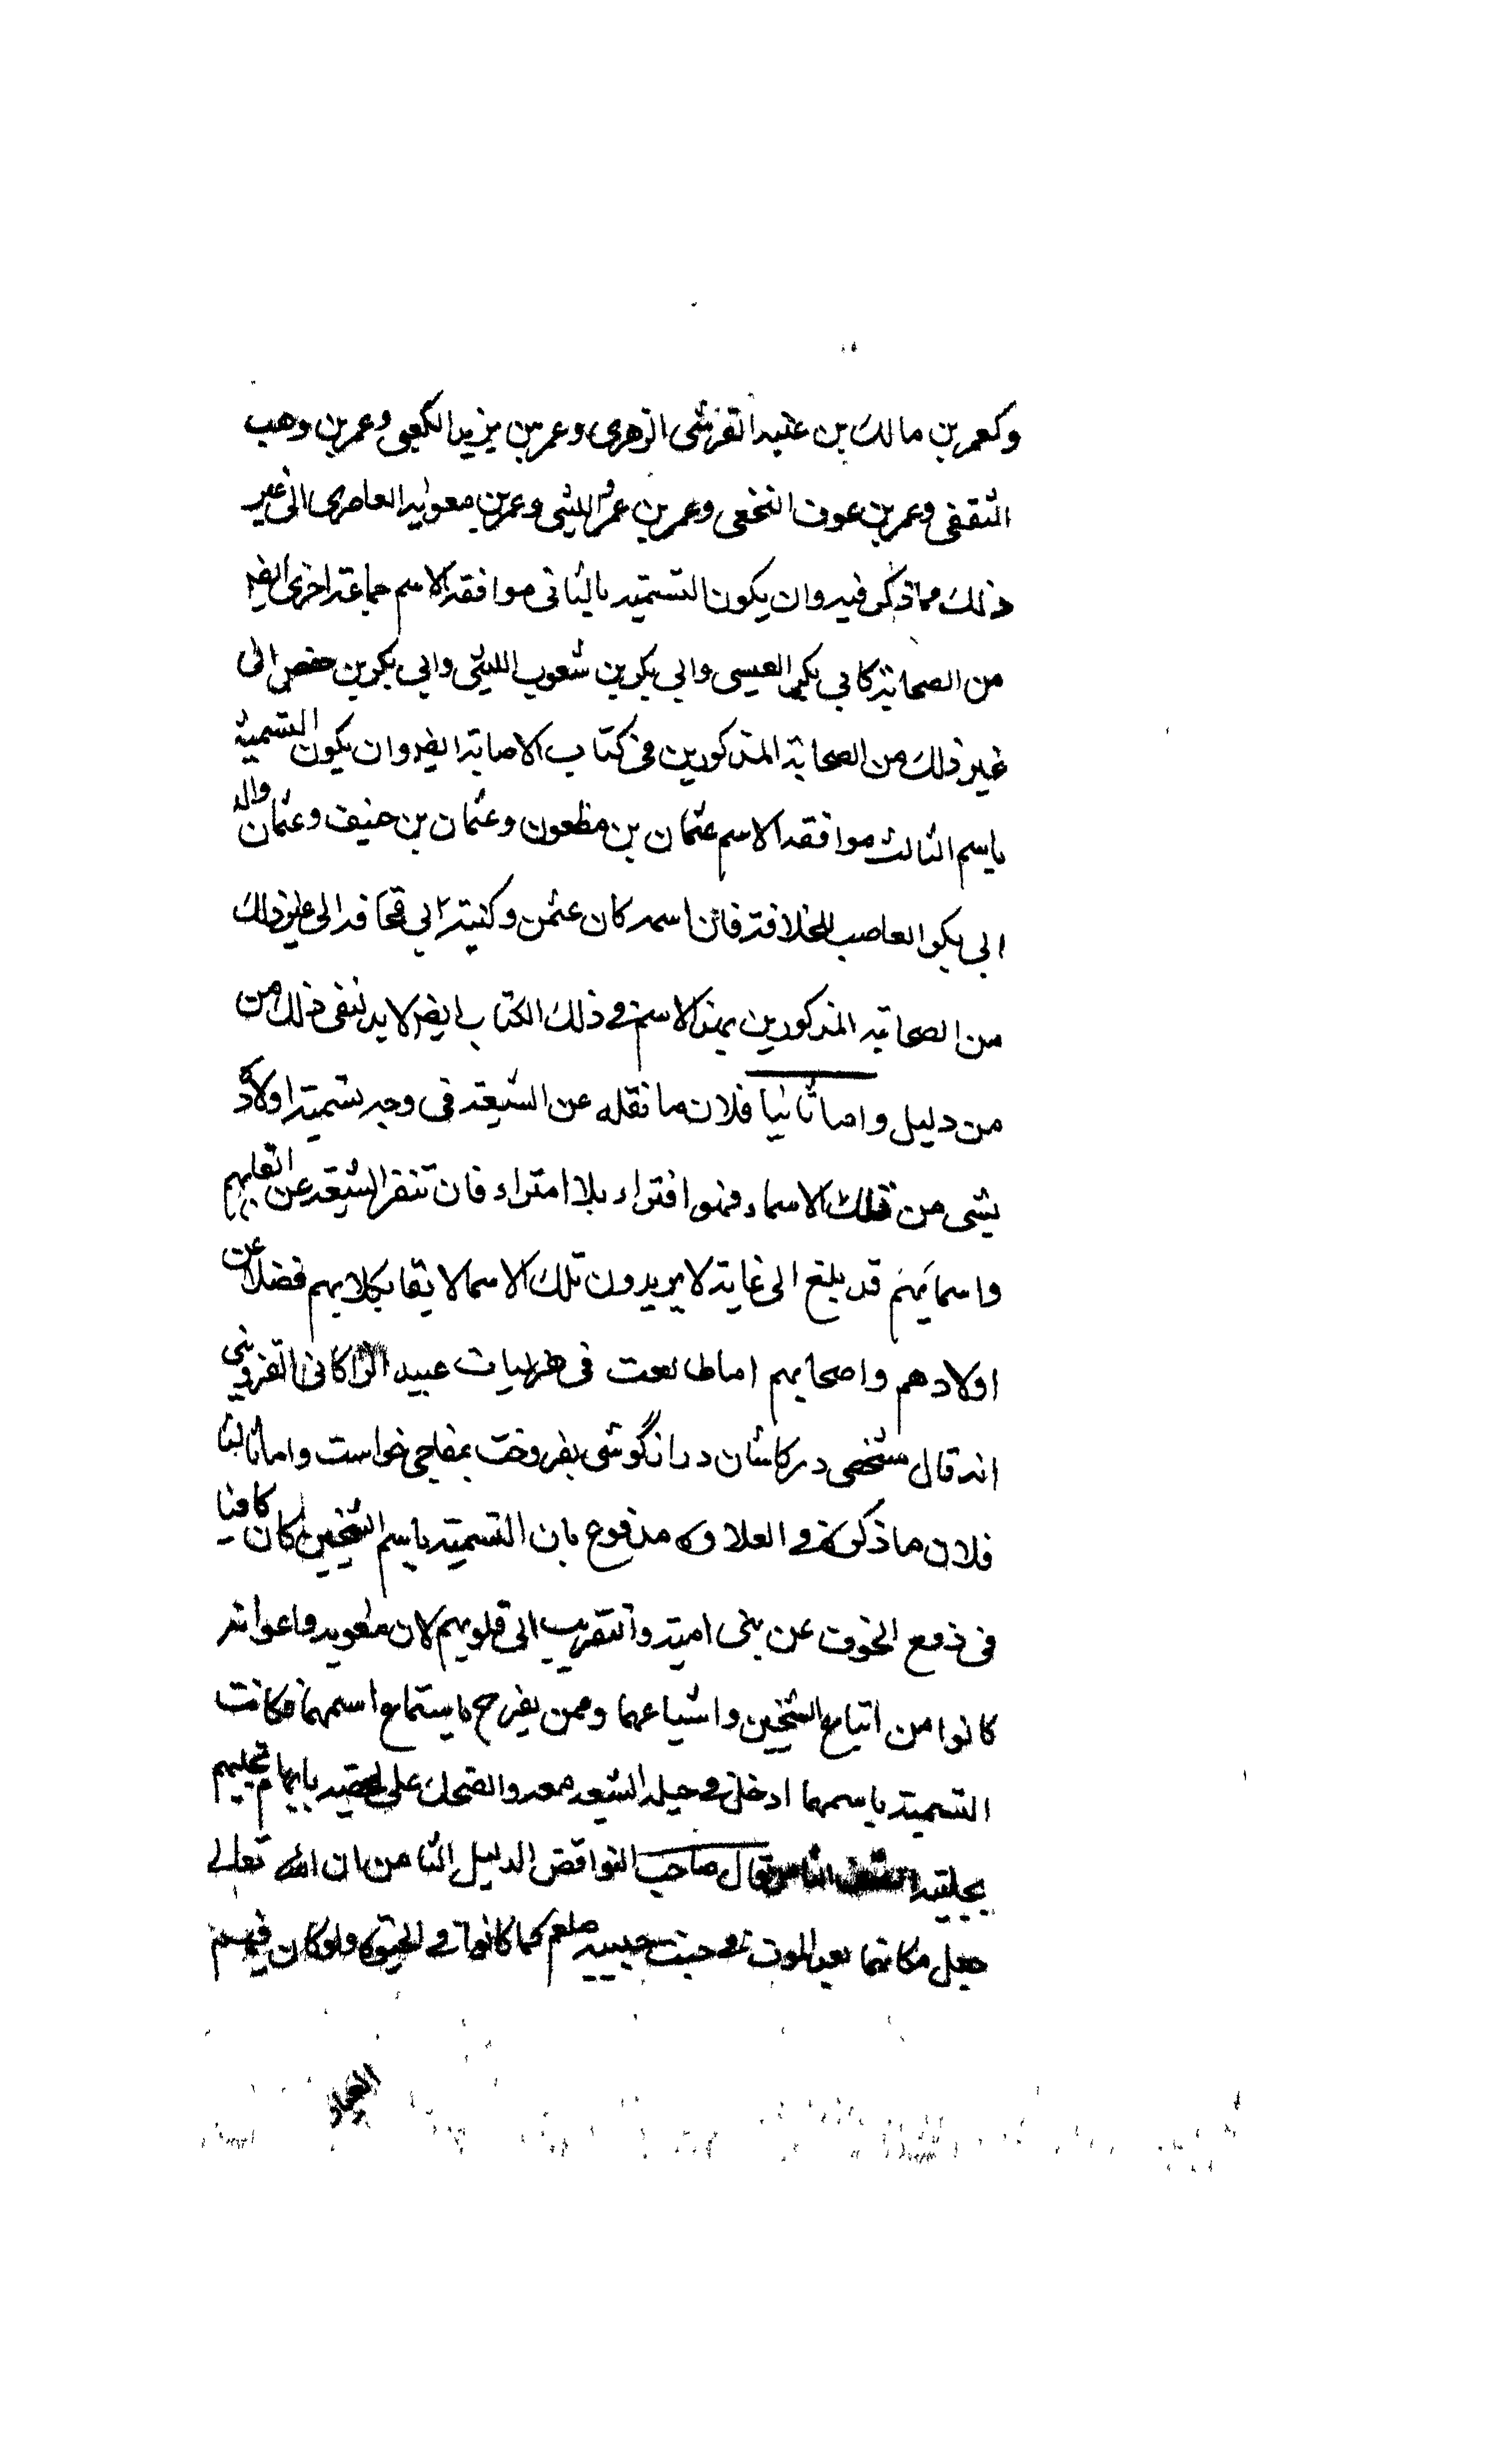 وكعمر بن مالك بن عتبه القرشى الزهرى وعمر بن يزيد الكعبى وعمر بن وهب
الثقفى وعمر بن عوف النخعى وعمر بن عمر الليثى وعمر بن معويه العاصرى الى غير
ذلك مما ذكر فيه وان يكون التسميه بالثانى موافقه لاسم جماعة اخرى ايضا
من الصحابة كابي بكر العيسى وابي بكر بن شعوب الليثى وابي بكر بن حفص الى
غير ذلك من الصحابة المذكورين فى كتاب الاصابة ايضا وان يكون التسمية
باسم الثالث موافقه لاسم عثمان بن مظعون وعثمان بن حنيف وعثمان والد
ابي بكر الغاصب للخلافة فان اسمه كان عثمن وكنيته ابي قحافه الى غير ذلك
من الصحابه المذكورين بهذا الاسم فى ذلك الكتاب ايضا لا بد لنفى ذلك من
من دليل واما ثانيا فلان ما نقله عن الشيعة فى وجه تسمية اولاد
بشى من تلك الاسماء فهو افتراء بلا امتراء فان تنفر الشيعة عن
واسمائهم قد بلغ الى غاية لا يريدون تلك الاسما لا بقا بكلابهم فضلا عن
اولادهم واصحابهم اما طالعت فى هزليات عبيد الزاكانى القزوينى
انه قال شخصى در كاشان درازگوشى بفروخت بمفاجى خواست واما ثالثا
فلان ما ذكره فى العلاوه مدفوع بان التسمية باسم الشيخين كان كافيا
فى دفع الخوف عن بنى امية والتقريب الى قلوبهم لان معويه واعوانه
كانوا من اتباع الشيخين واشياعهما وممن يفرح باستماع اسمهما فكانت
التسمية باسمهما ادخل فى حيلة الشيعه معه والضحك على لحيته بايهام تحليهم
بحليته قال صاحب النواقض الدليل الثامن ان الله تعالى
جعل مكانهما بعد الموت فى جنب حبيبه صلعم كما كانوا فى الحيوة ولو كان فيهم